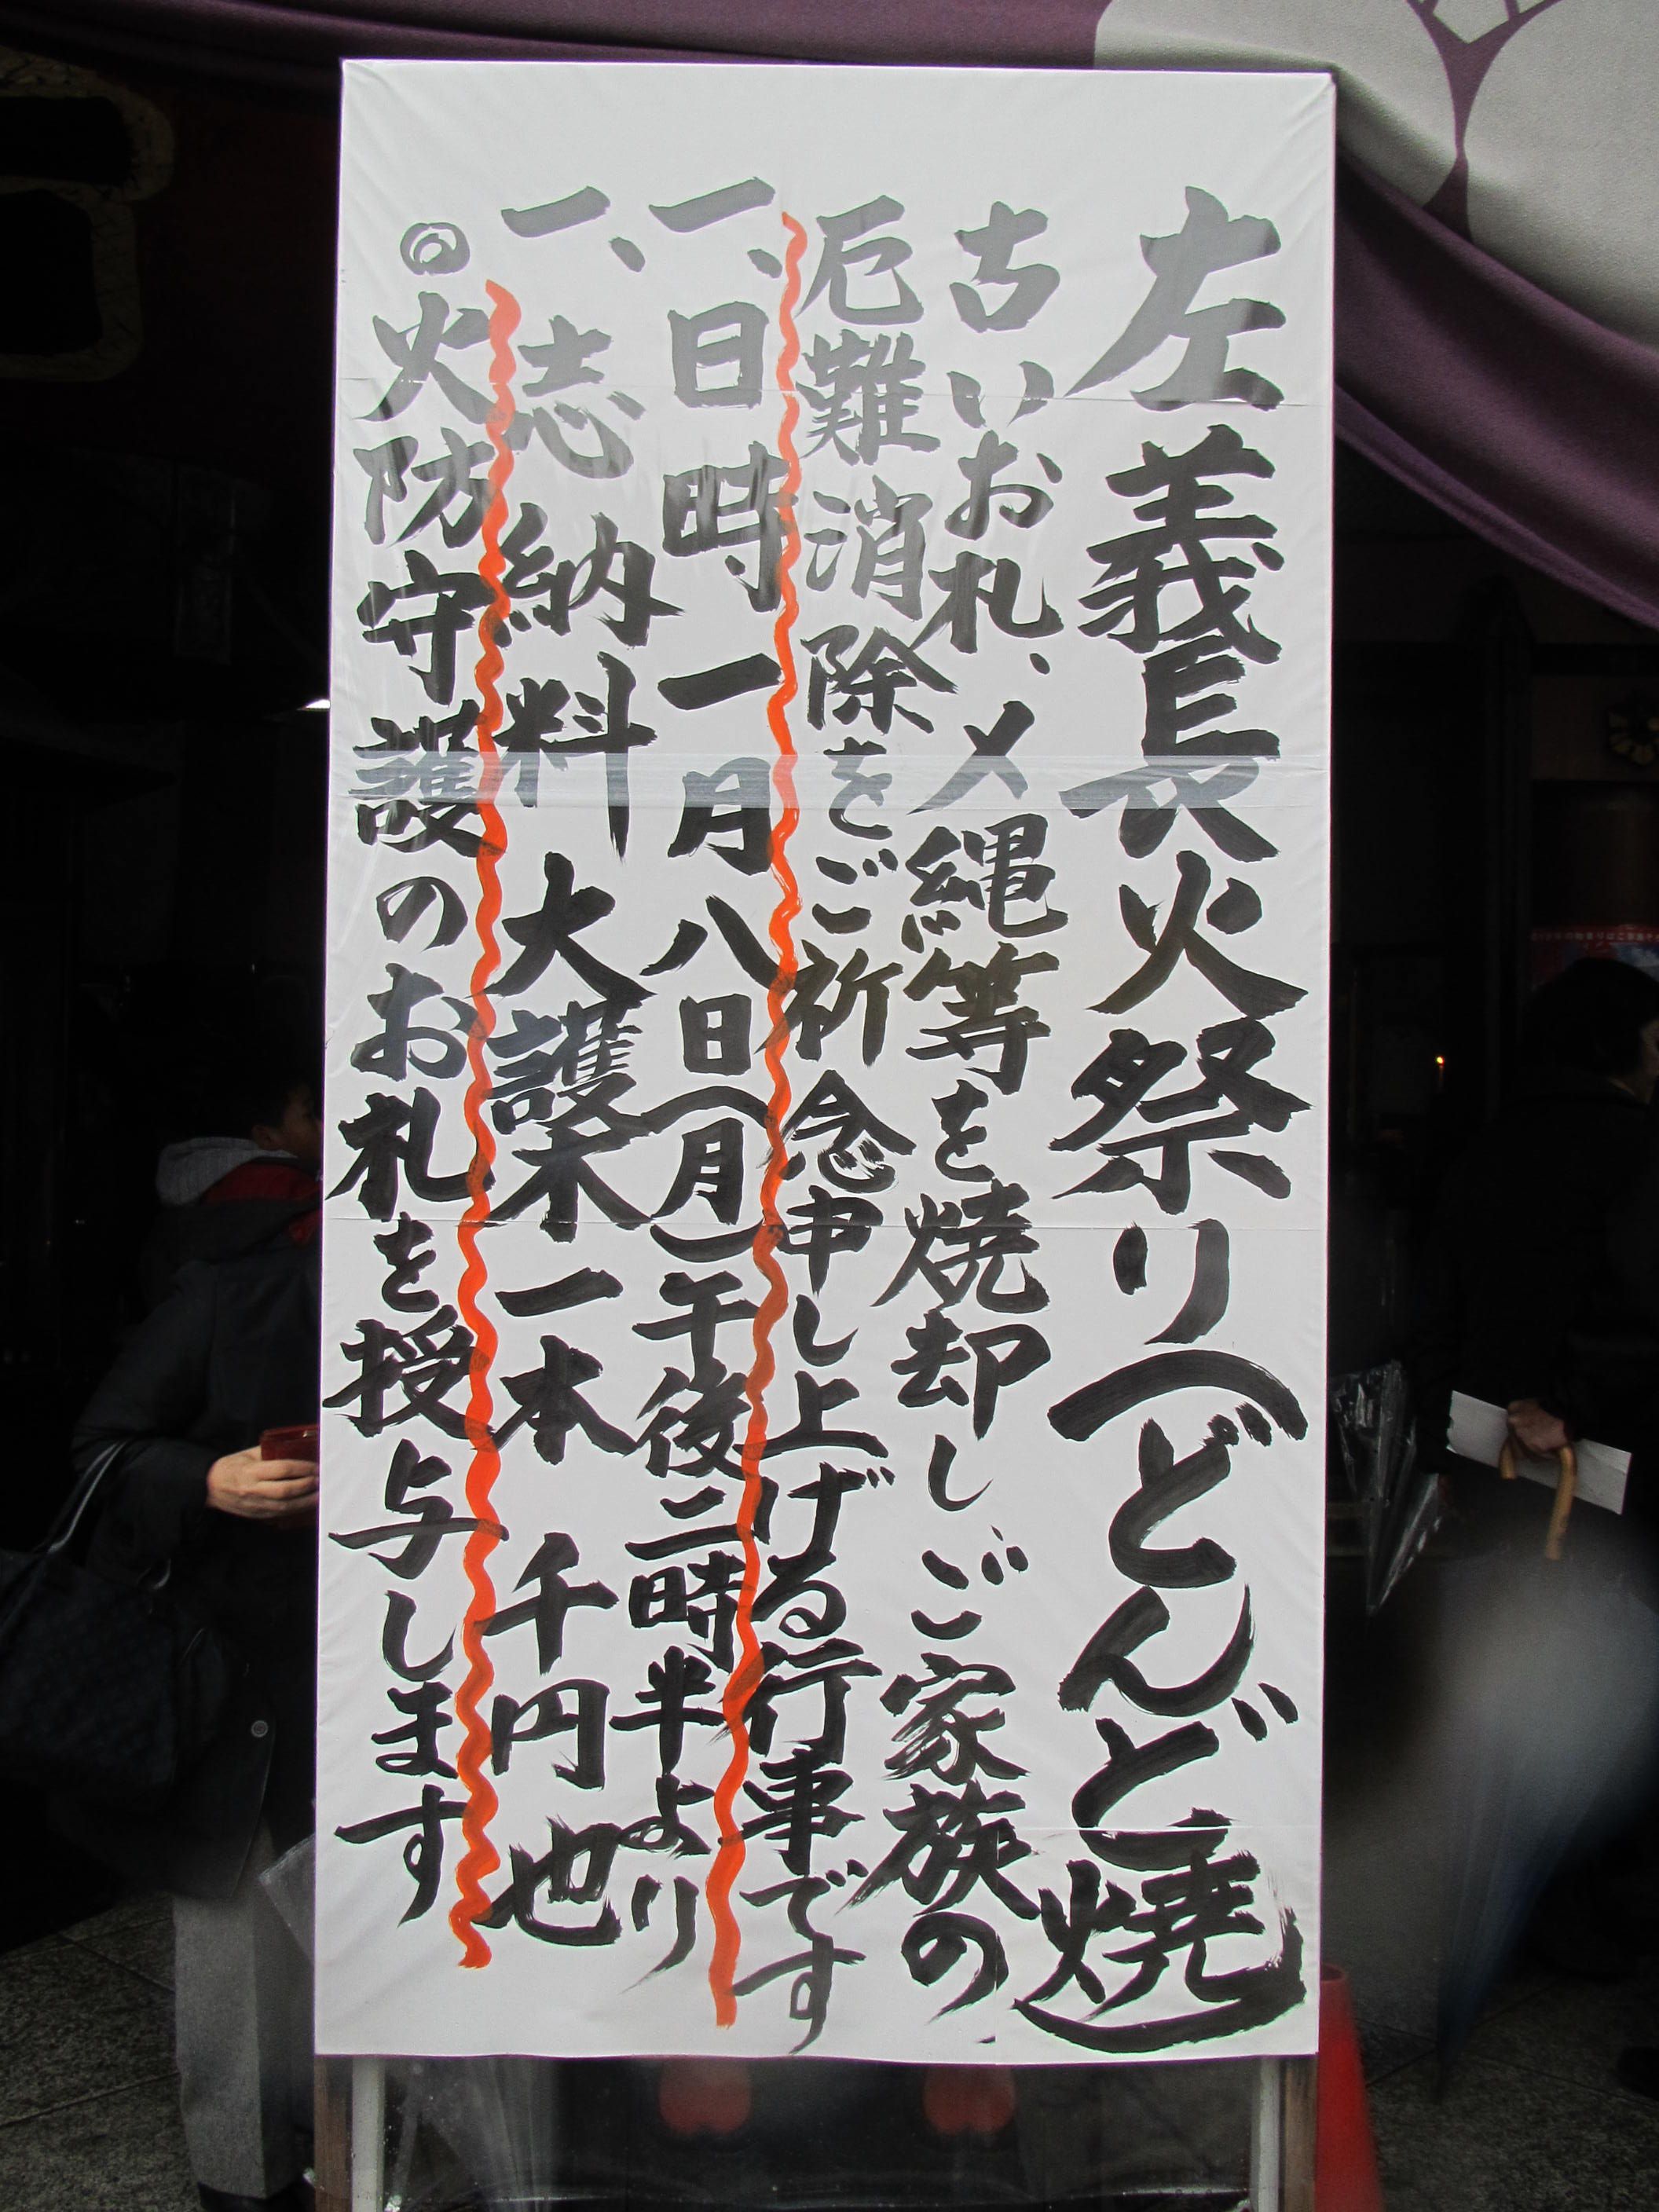 左義長火祭り(どんど焼)
古いお札、〆縄等を焼却しご家族の
厄難消除をご祈念申し上げる行事です
一、日時 一月八日(月)午後二時半より
一、志納料 大護木一本 千円也
◎火防守護のお札を授与します